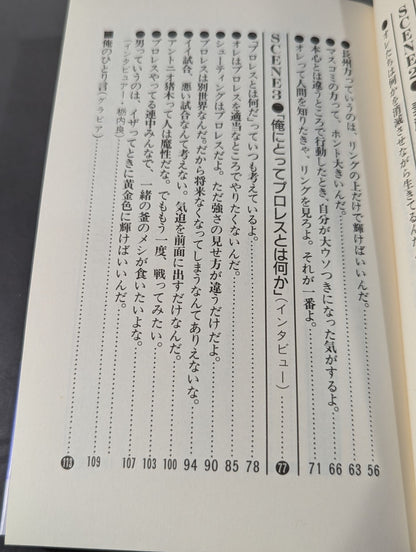 ●オレたちは何かを
させながら生きてるん
●長州力っていうのは、リングの上だけで輝けばいいんだ。 56
●マスコミの力って、ホント大きいんだ。 63
●本心とは違うところで行動したとき、自分が大ウソつきになった気がするよ。 66
●オレって人間を知りたきゃ、リングを見ろよ。それが一番よ。 71
SCENE3●「俺にとってプロレスとは何か」(インタビュー) 77
●“プロレスとは何だ”っていつも考えているよ。 78
●オレはプロレスを適当なところでやりたくないんだ。 85
●シューティングはプロレスだよ。ただ強さの見せ方が違うだけだよ。 90
●プロレスは別世界なんだ。だから将来なくなってしまうなんてありえないな。 94
●イイ試合、悪い試合なんて考えない。気迫を前面に出すだけなんだ。 100
●アントニオ猪木って人は魔性だな。でももう一度、戦ってみたい。 103
●プロレスやってる連中みんなで、一緒の釜のメシが食いたいよな。 107
●男っていうのは、イザってときに黄金色に輝けばいいんだ。 109
(インタビュアー/栃内良)
●俺のひとり言(グラビア) 113